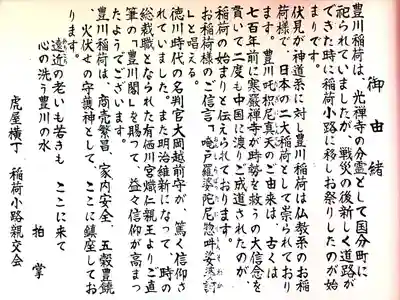 御由緒
豊川稲荷は、光禅寺の分霊として国分町に
祀られていましたが、戦災の後新しく道路が
できた時に稲荷小路に移しお祭りしたのが始
まりです。
伏見が神道系に対し豊川稲荷は仏教系のお稲
荷様で、日本の二大稲荷として崇られており
ます。豊川吒枳尼真天のご由来は、古くは
七百年前に寒巌禅寺が時勢を救うの大信念を
貫いて二度も中国に渡りご成道されたのが、
稲荷の始まりと伝えられております。
お稲荷様のご信言「唵尸羅婆陀尼惣吽娑婆訶
」と唱える。
徳川時代の名判官大岡越前守が、篤く信仰さ
れていました。また明治維新になって、時の
総裁職となられた有栖川宮熾仁親王よりご直
筆の「豊川閣」を賜って、益々信仰が高まっ
たようでございます。
豊川稲荷は、商売繁昌、家内安全、五穀豊饒
、火伏せの守護神として、ここに鎮座してお
ります。
遠近の老いも若きも ここに来て
心の洗う豊川の水 拍掌
虎屋横丁 稲荷小路親交会